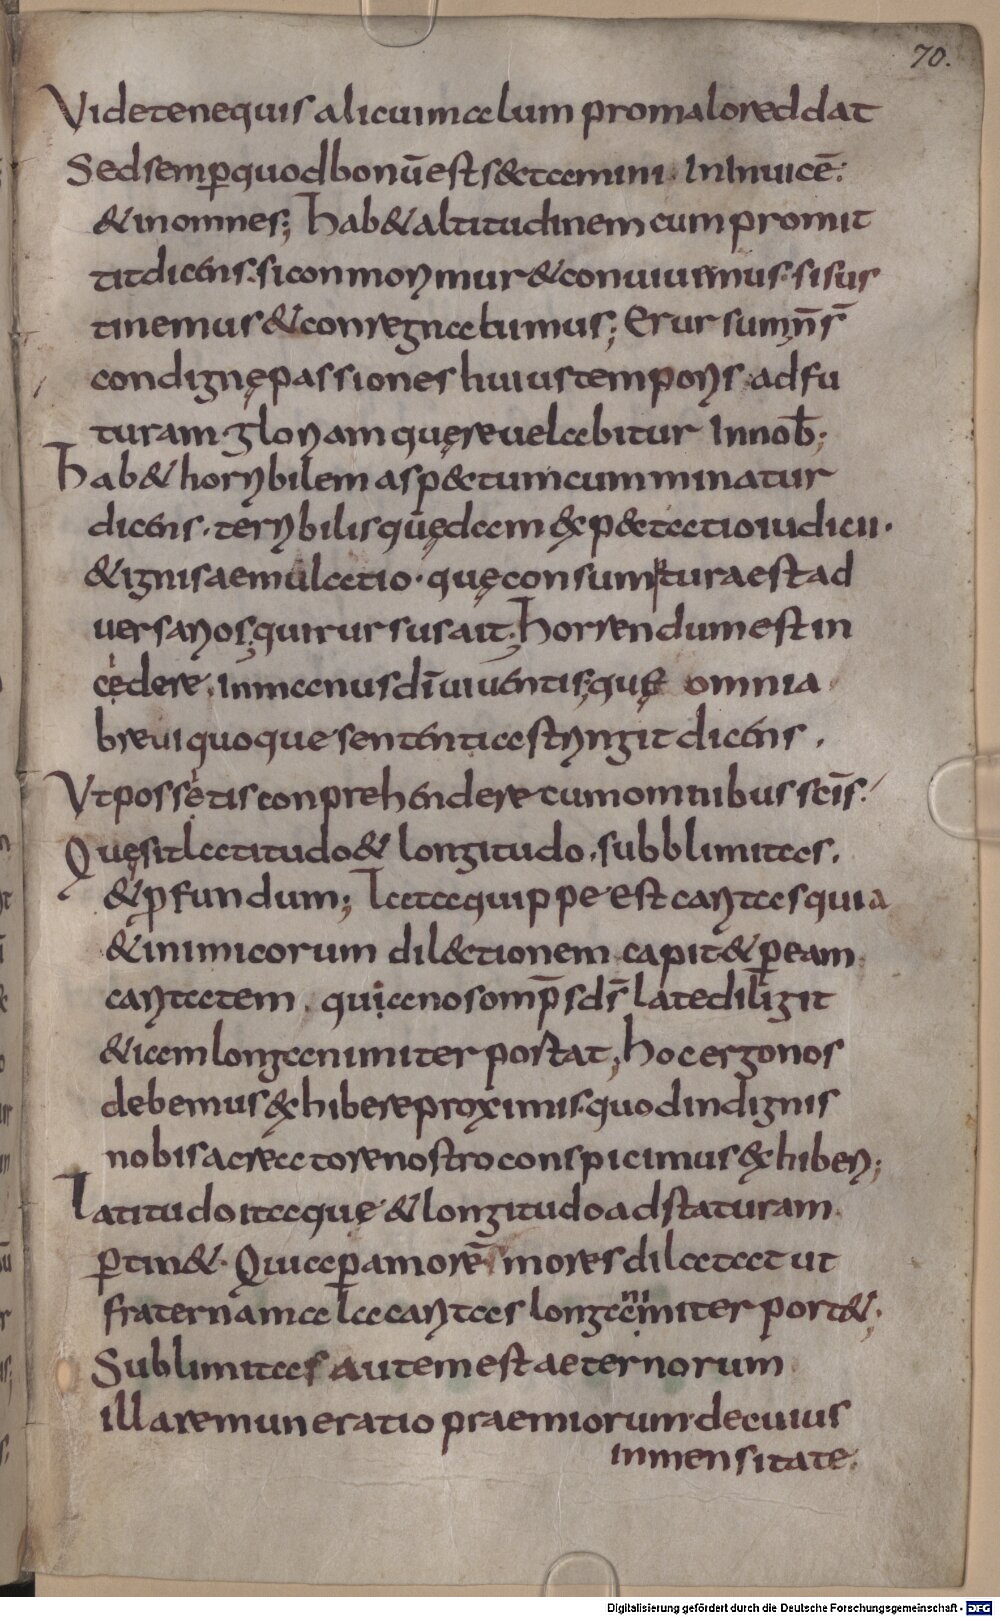 70.
Videte nequis alicui malum pro malo reddat
Sed semꝑ quod bonū est s&tamini. In Inuicē:
& in omnes; hab& altitudinem cum promit
tit dicens. si conmorimur & conuiuimus. si sus
tinemus & conregnabimus; Et rursum; ñs
condignę passiones huius temporis ad fu
turam gloriam quę reuelabitur In nob̄;
hab& horribilem asp&tum cum minatur
dicens. terribilis quędam exp&tatio iudicii.
& ignis aemulatio. quę consumptura est ad
uersarios; qui rursus ait; horrendum est in
cedere. In manus dī uiuentis; quę omnia
breui quoque sententia stringit dicens.
Ut possetis conprehendere cum omnibus sc̄is.
Quę sit latitudo & longitudo. subblimitas.
& ꝓfundum; Lata quippe est caritas quia
& inimicorum dil&tionem capit & ꝑ eam
caritatem. quia nos omp̄s ds̄ late diligit
& iam longanimiter portat; hoc ergo nos
debemus exhibere proximis. quod indignis
nobis a creatore nostro conspicimus exhiberi;
Latitudo itaque & longitudo ad staturam
ꝑtin&. Quia ꝑ amorē mores dilatat ut
fraterna mala caritas longanimiter port&;
Sublimitas autem est aeternorum
illa remuneratio praemiorum. de cuius
inmensitate.
Digitalisierung gefördert durch die Deutsche Forschungsgemeinschaft - DFG